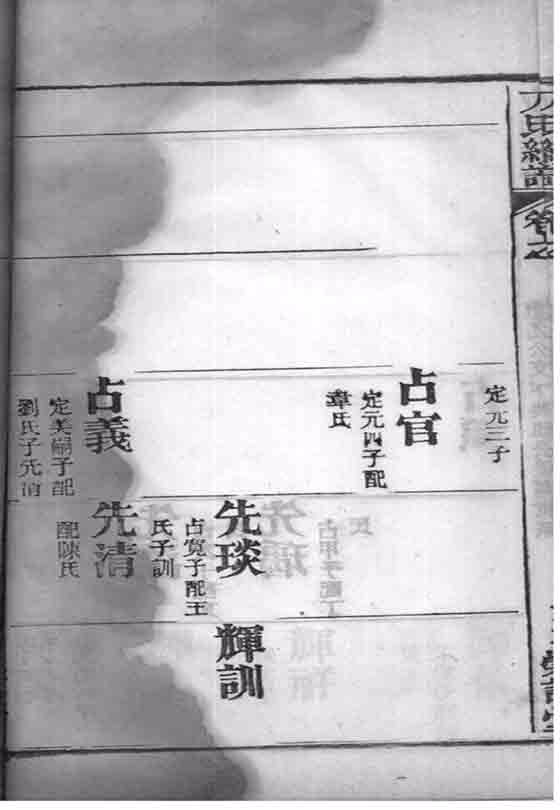 定元三子
占官
定元四子配
章氏
先琰
占寬子配王
氏子訓
輝訓
占義
定美嗣子配
劉氏子先清
先清
配陳氏